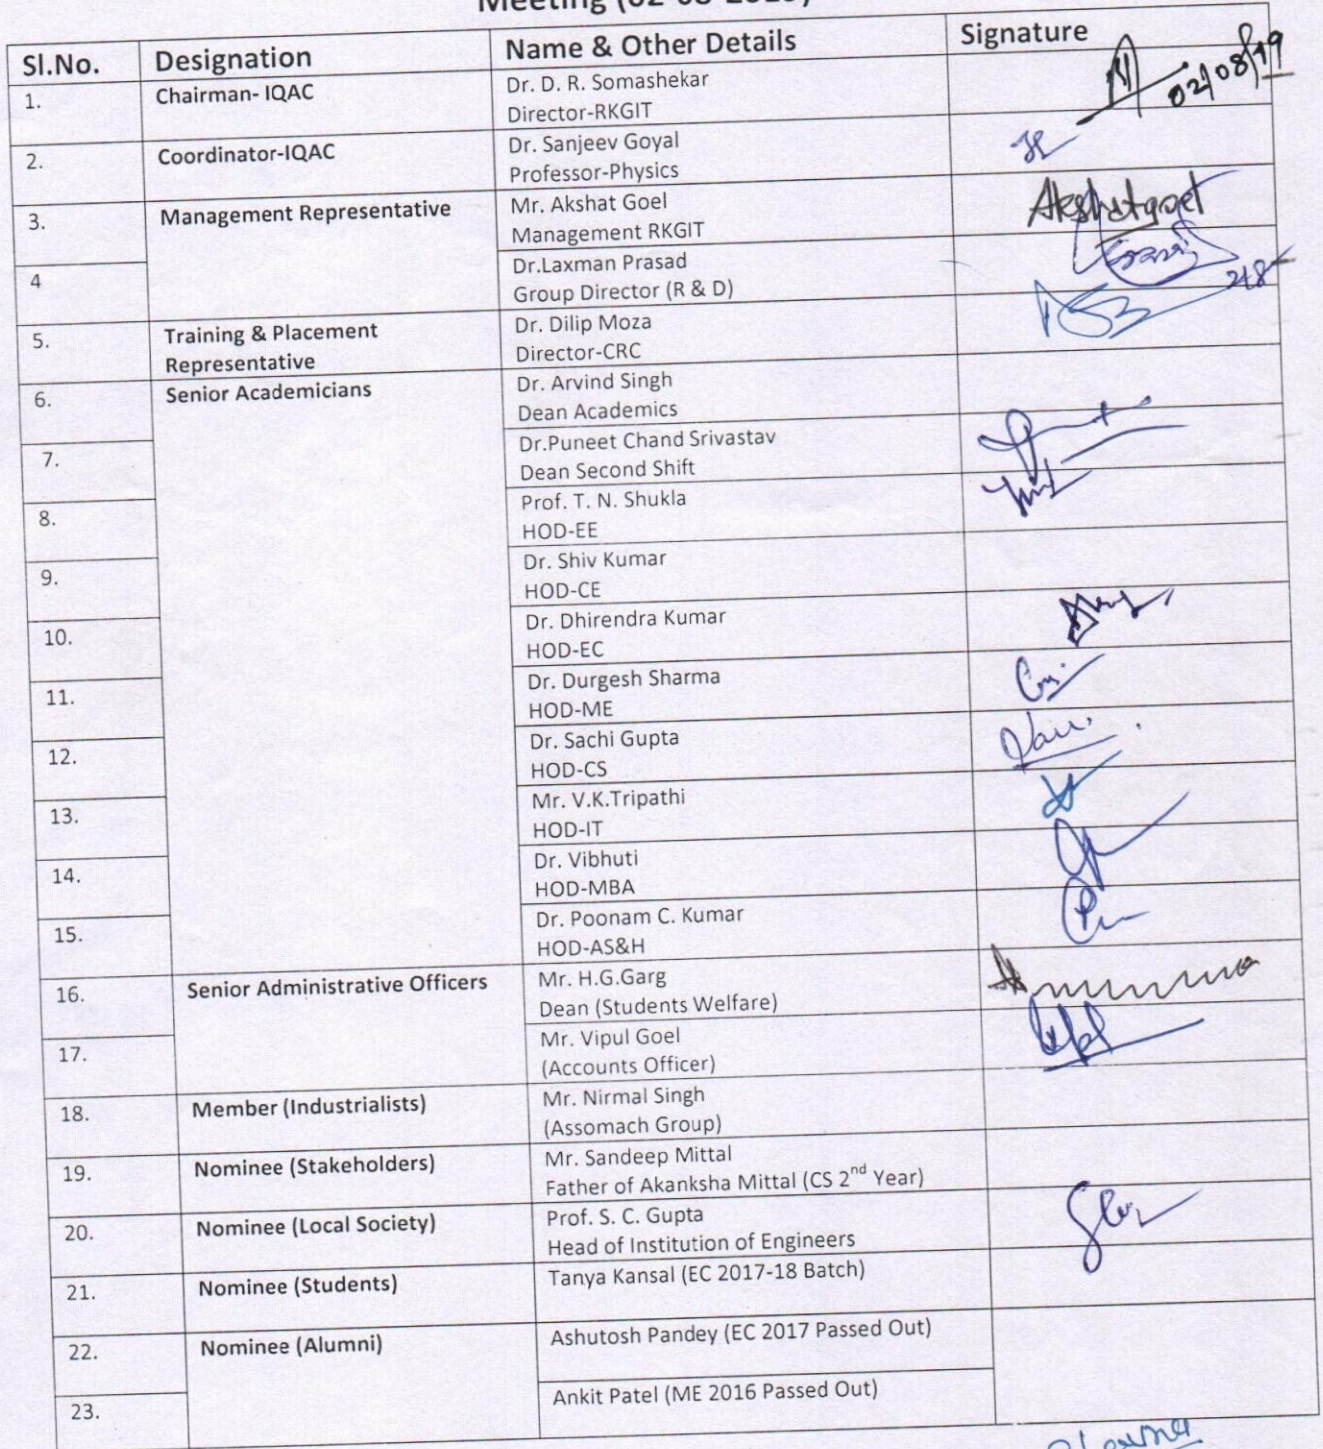 Meeting (02-08-2019)
Sl.No. Designation Name & Other Details Signature
1. Chairman- IQAC Dr. D. R. Somashekar
Director-RKGIT
02/08/19
2. Coordinator-IQAC Dr. Sanjeev Goyal
Professor-Physics
3. Management Representative Mr. Akshat Goel
Management RKGIT
Akshatgoel
4 Dr.Laxman Prasad
Group Director (R & D)
2/8
5. Training & Placement Dr. Dilip Moza
Representative Director-CRC
6. Senior Academicians Dr. Arvind Singh
Dean Academics
7. Dr.Puneet Chand Srivastav
Dean Second Shift
8. Prof. T. N. Shukla
HOD-EE
9. Dr. Shiv Kumar
HOD-CE
10. Dr. Dhirendra Kumar
HOD-EC
11. Dr. Durgesh Sharma
HOD-ME
12. Dr. Sachi Gupta
HOD-CS
13. Mr. V.K.Tripathi
HOD-IT
14. Dr. Vibhuti
HOD-MBA
15. Dr. Poonam C. Kumar
HOD-AS&H
16. Senior Administrative Officers Mr. H.G.Garg
Dean (Students Welfare)
17. Mr. Vipul Goel
(Accounts Officer)
18. Member (Industrialists) Mr. Nirmal Singh
(Assomach Group)
19. Nominee (Stakeholders) Mr. Sandeep Mittal
Father of Akanksha Mittal (CS 2nd Year)
20. Nominee (Local Society) Prof. S. C. Gupta
Head of Institution of Engineers
21. Nominee (Students) Tanya Kansal (EC 2017-18 Batch)
22. Nominee (Alumni) Ashutosh Pandey (EC 2017 Passed Out)
23. Ankit Patel (ME 2016 Passed Out)